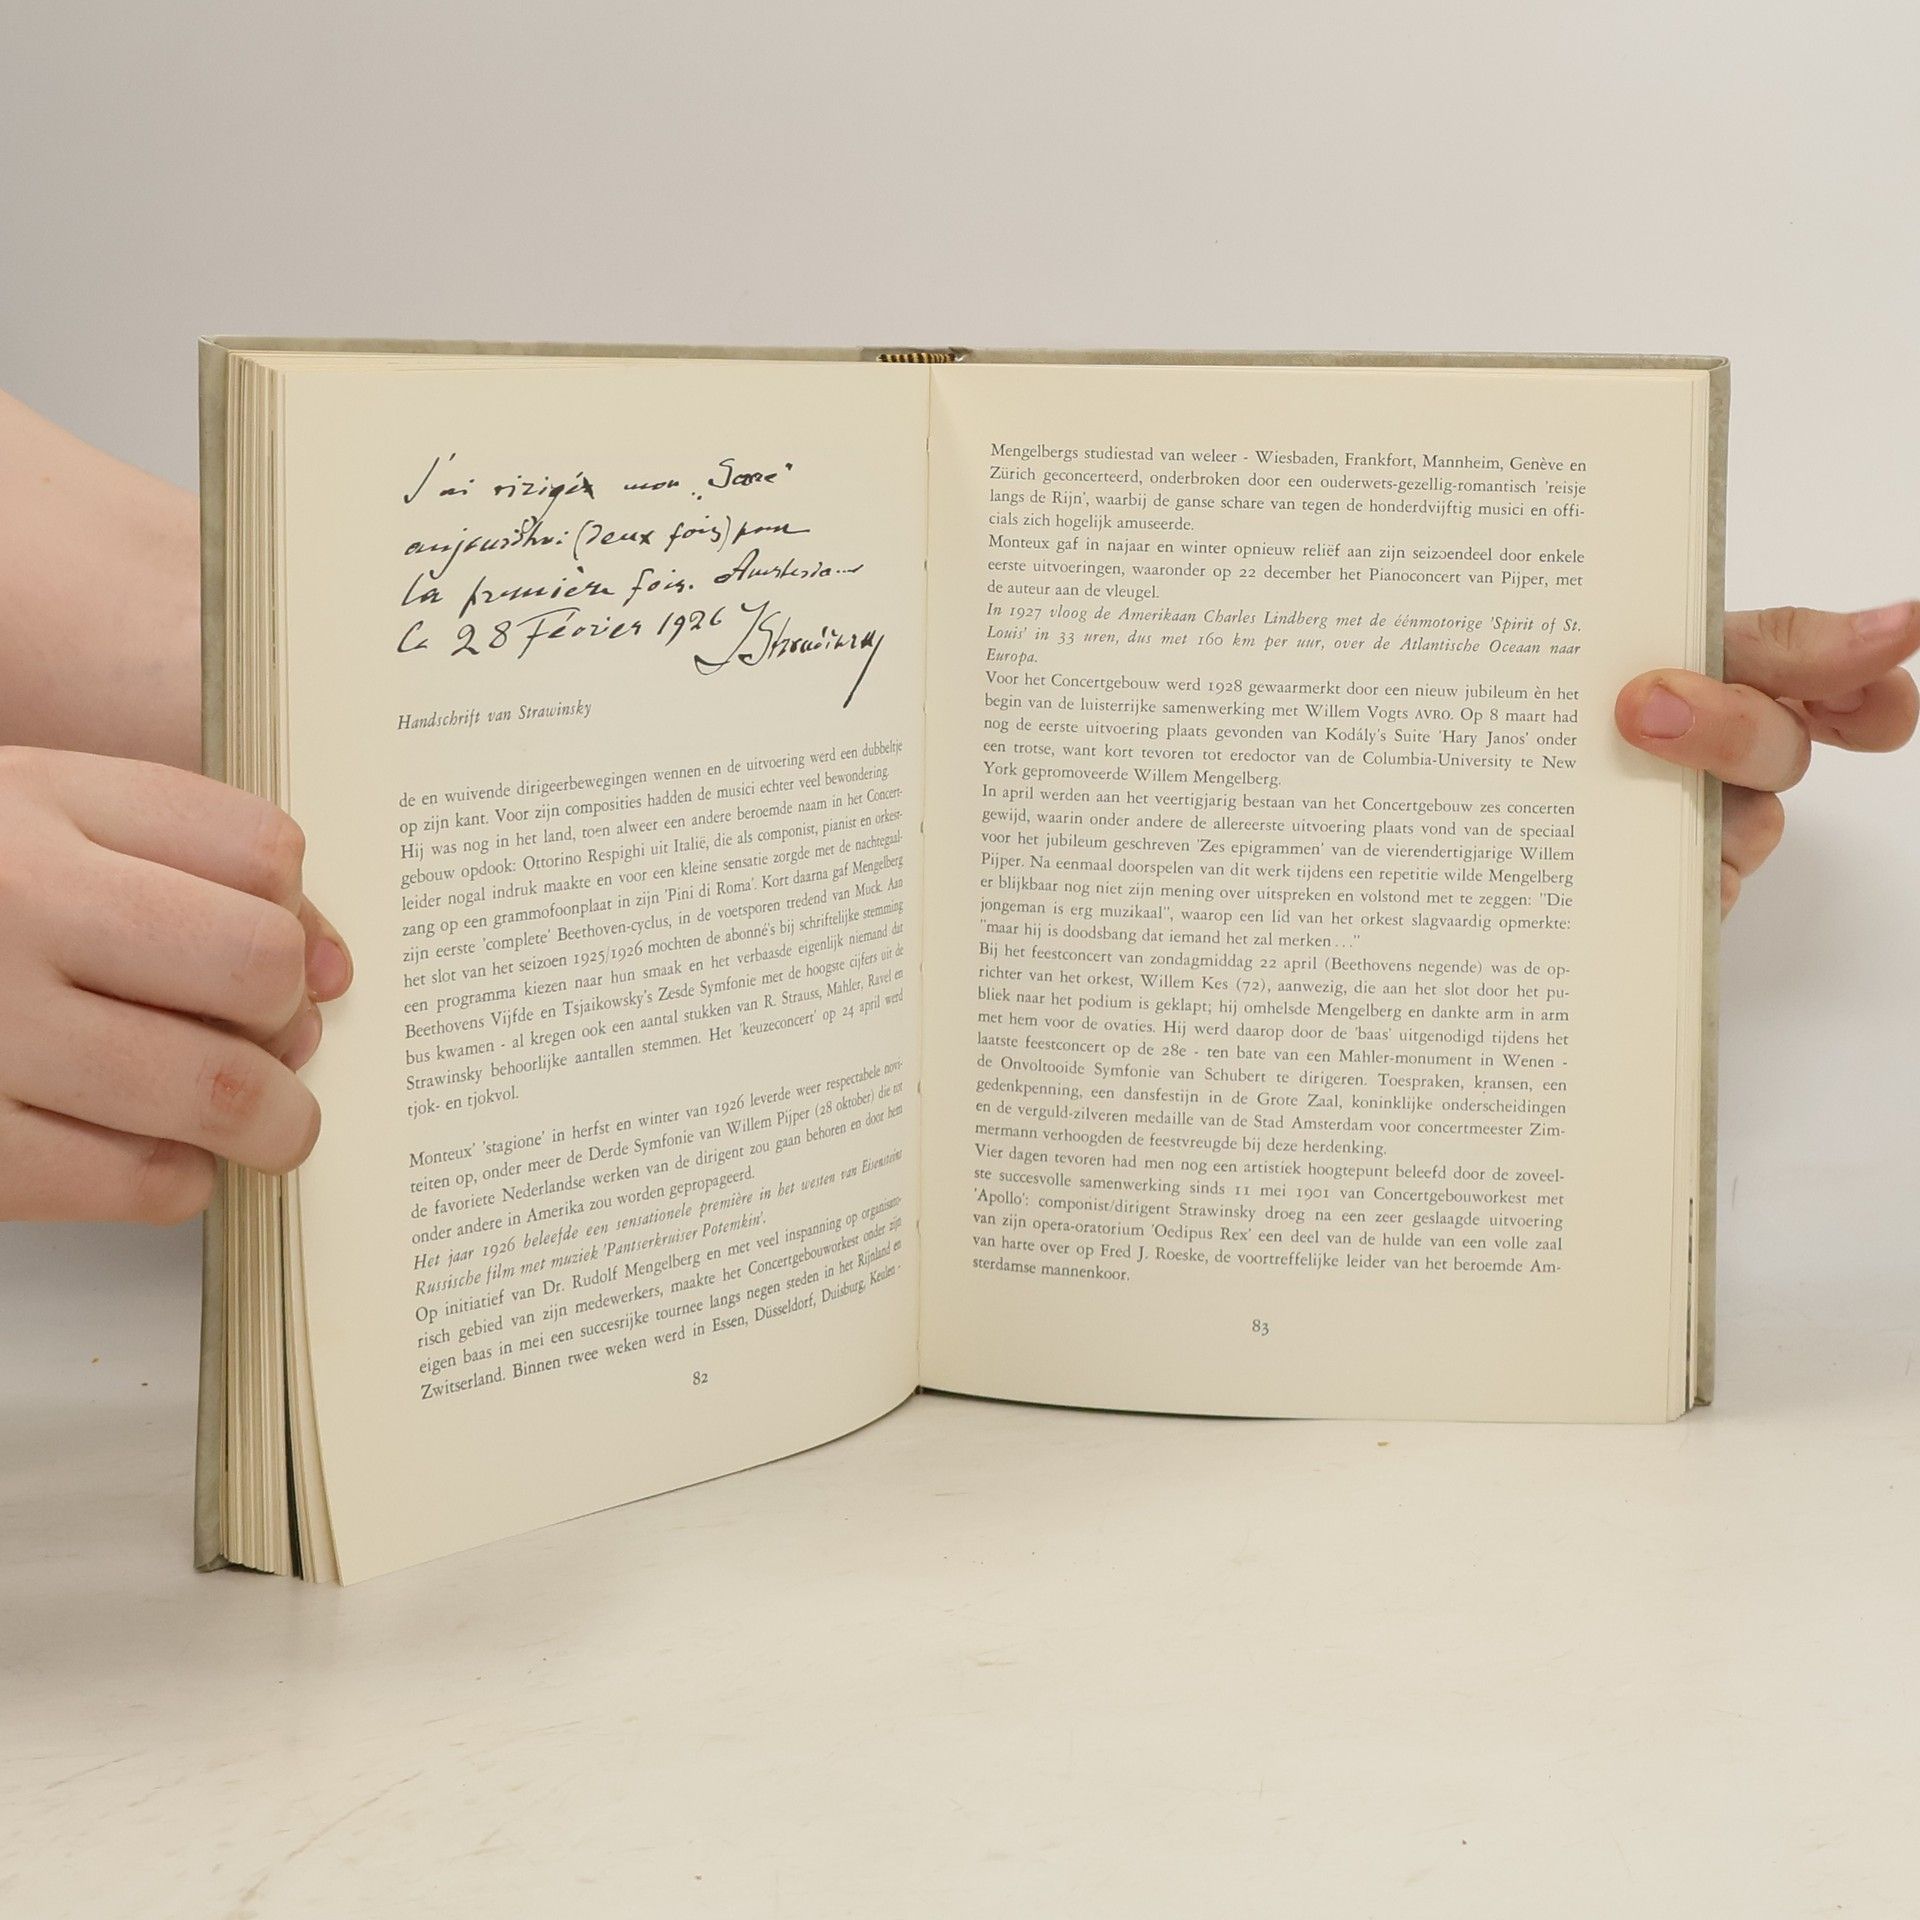 J'ai dirigé mon „Sacre"
aujourd'hui (deux fois) pour
la première fois. Amsterdam
Le 28 Février 1926 IStrawinsky
Handschrift van Strawinsky
de en wuivende dirigeerbewegingen wennen en de uitvoering werd een dubbeltje
op zijn kant. Voor zijn composities hadden de musici echter veel bewondering.
Hij was nog in het land, toen alweer een andere beroemde naam in het Concert-
gebouw opdook: Ottorino Respighi uit Italië, die als componist, pianist en orkest-
leider nogal indruk maakte en voor een kleine sensatie zorgde met de nachtegaal-
zang op een grammofoonplaat in zijn 'Pini di Roma'. Kort daarna gaf Mengelberg
zijn eerste 'complete' Beethoven-cyclus, in de voetsporen tredend van Muck. Aan
het slot van het seizoen 1925/1926 mochten de abonné's bij schriftelijke stemming
een programma kiezen naar hun smaak en het verbaasde eigenlijk niemand dat
Beethovens Vijfde en Tsjaikowsky's Zesde Symfonie met de hoogste cijfers uit de
bus kwamen - al kregen ook een aantal stukken van R. Strauss, Mahler, Ravel en
Strawinsky behoorlijke aantallen stemmen. Het 'keuzeconcert' op 24 april werd
tjok- en tjokvol.
Monteux' 'stagione' in herfst en winter van 1926 leverde weer respectabele novi-
teiten op, onder meer de Derde Symfonie van Willem Pijper (28 oktober) die tot
de favoriete Nederlandse werken van de dirigent zou gaan behoren en door hem
onder andere in Amerika zou worden gepropageerd.
Het jaar 1926 beleefde een sensationele première in het westen van Eisensteins
Russische film met muziek 'Pantserkruiser Potemkin'.
Op initiatief van Dr. Rudolf Mengelberg en met veel inspanning op organisato-
risch gebied van zijn medewerkers, maakte het Concertgebouworkest onder zijn
eigen baas in mei een succesrijke tournee langs negen steden in het Rijnland en
Zwitserland. Binnen twee weken werd in Essen, Düsseldorf, Duisburg, Keulen -
82
Mengelbergs studiestad van weleer - Wiesbaden, Frankfort, Mannheim, Genève en
Zürich geconcerteerd, onderbroken door een ouderwets-gezellig-romantisch 'reisje
langs de Rijn', waarbij de ganse schare van tegen de honderdvijftig musici en offi-
cials zich hogelijk amuseerde.
Monteux gaf in najaar en winter opnieuw reliëf aan zijn seizoendeel door enkele
eerste uitvoeringen, waaronder op 22 december het Pianoconcert van Pijper, met
de auteur aan de vleugel.
In 1927 vloog de Amerikaan Charles Lindberg met de éénmotorige 'Spirit of St.
Louis' in 33 uren, dus met 160 km per uur, over de Atlantische Oceaan naar
Europa.
Voor het Concertgebouw werd 1928 gewaarmerkt door een nieuw jubileum èn het
begin van de luisterrijke samenwerking met Willem Vogts AVRO. Op 8 maart had
nog de eerste uitvoering plaats gevonden van Kodály's Suite 'Hary Janos' onder
een trotse, want kort tevoren tot eredoctor van de Columbia-University te New
York gepromoveerde Willem Mengelberg.
In april werden aan het veertigjarig bestaan van het Concertgebouw zes concerten
gewijd, waarin onder andere de allereerste uitvoering plaats vond van de speciaal
voor het jubileum geschreven 'Zes epigrammen' van de vierendertigjarige Willem
Pijper. Na eenmaal doorspelen van dit werk tijdens een repetitie wilde Mengelberg
er blijkbaar nog niet zijn mening over uitspreken en volstond met te zeggen: "Die
jongeman is erg muzikaal", waarop een lid van het orkest slagvaardig opmerkte:
"maar hij is doodsbang dat iemand het zal merken . . ."
Bij het feestconcert van zondagmiddag 22 april (Beethovens negende) was de op-
richter van het orkest, Willem Kes (72), aanwezig, die aan het slot door het pu-
bliek naar het podium is geklapt; hij omhelsde Mengelberg en dankte arm in arm
met hem voor de ovaties. Hij werd daarop door de 'baas' uitgenodigd tijdens het
laatste feestconcert op de 28e - ten bate van een Mahler-monument in Wenen -
de Onvoltooide Symfonie van Schubert te dirigeren. Toespraken, kransen, een
gedenkpenning, een dansfestijn in de Grote Zaal, koninklijke onderscheidingen
en de verguld-zilveren medaille van de Stad Amsterdam voor concertmeester Zim-
mermann verhoogden de feestvreugde bij deze herdenking.
Vier dagen tevoren had men nog een artistiek hoogtepunt beleefd door de zoveel-
ste succesvolle samenwerking sinds 11 mei 1901 van Concertgebouworkest met
'Apollo': componist/dirigent Strawinsky droeg na een zeer geslaagde uitvoering
van zijn opera-oratorium 'Oedipus Rex' een deel van de hulde van een volle zaal
van harte over op Fred J. Roeske, de voortreffelijke leider van het beroemde Am-
sterdamse mannenkoor.
83